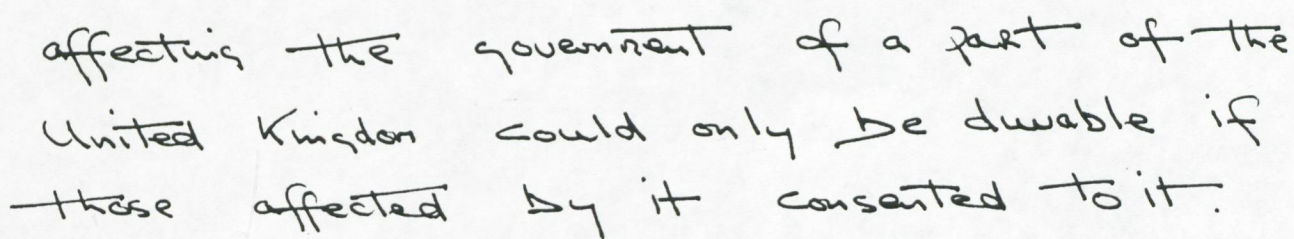 affecting the government of a part of the
United Kingdom could only be durable if
those affected by it consented to it.